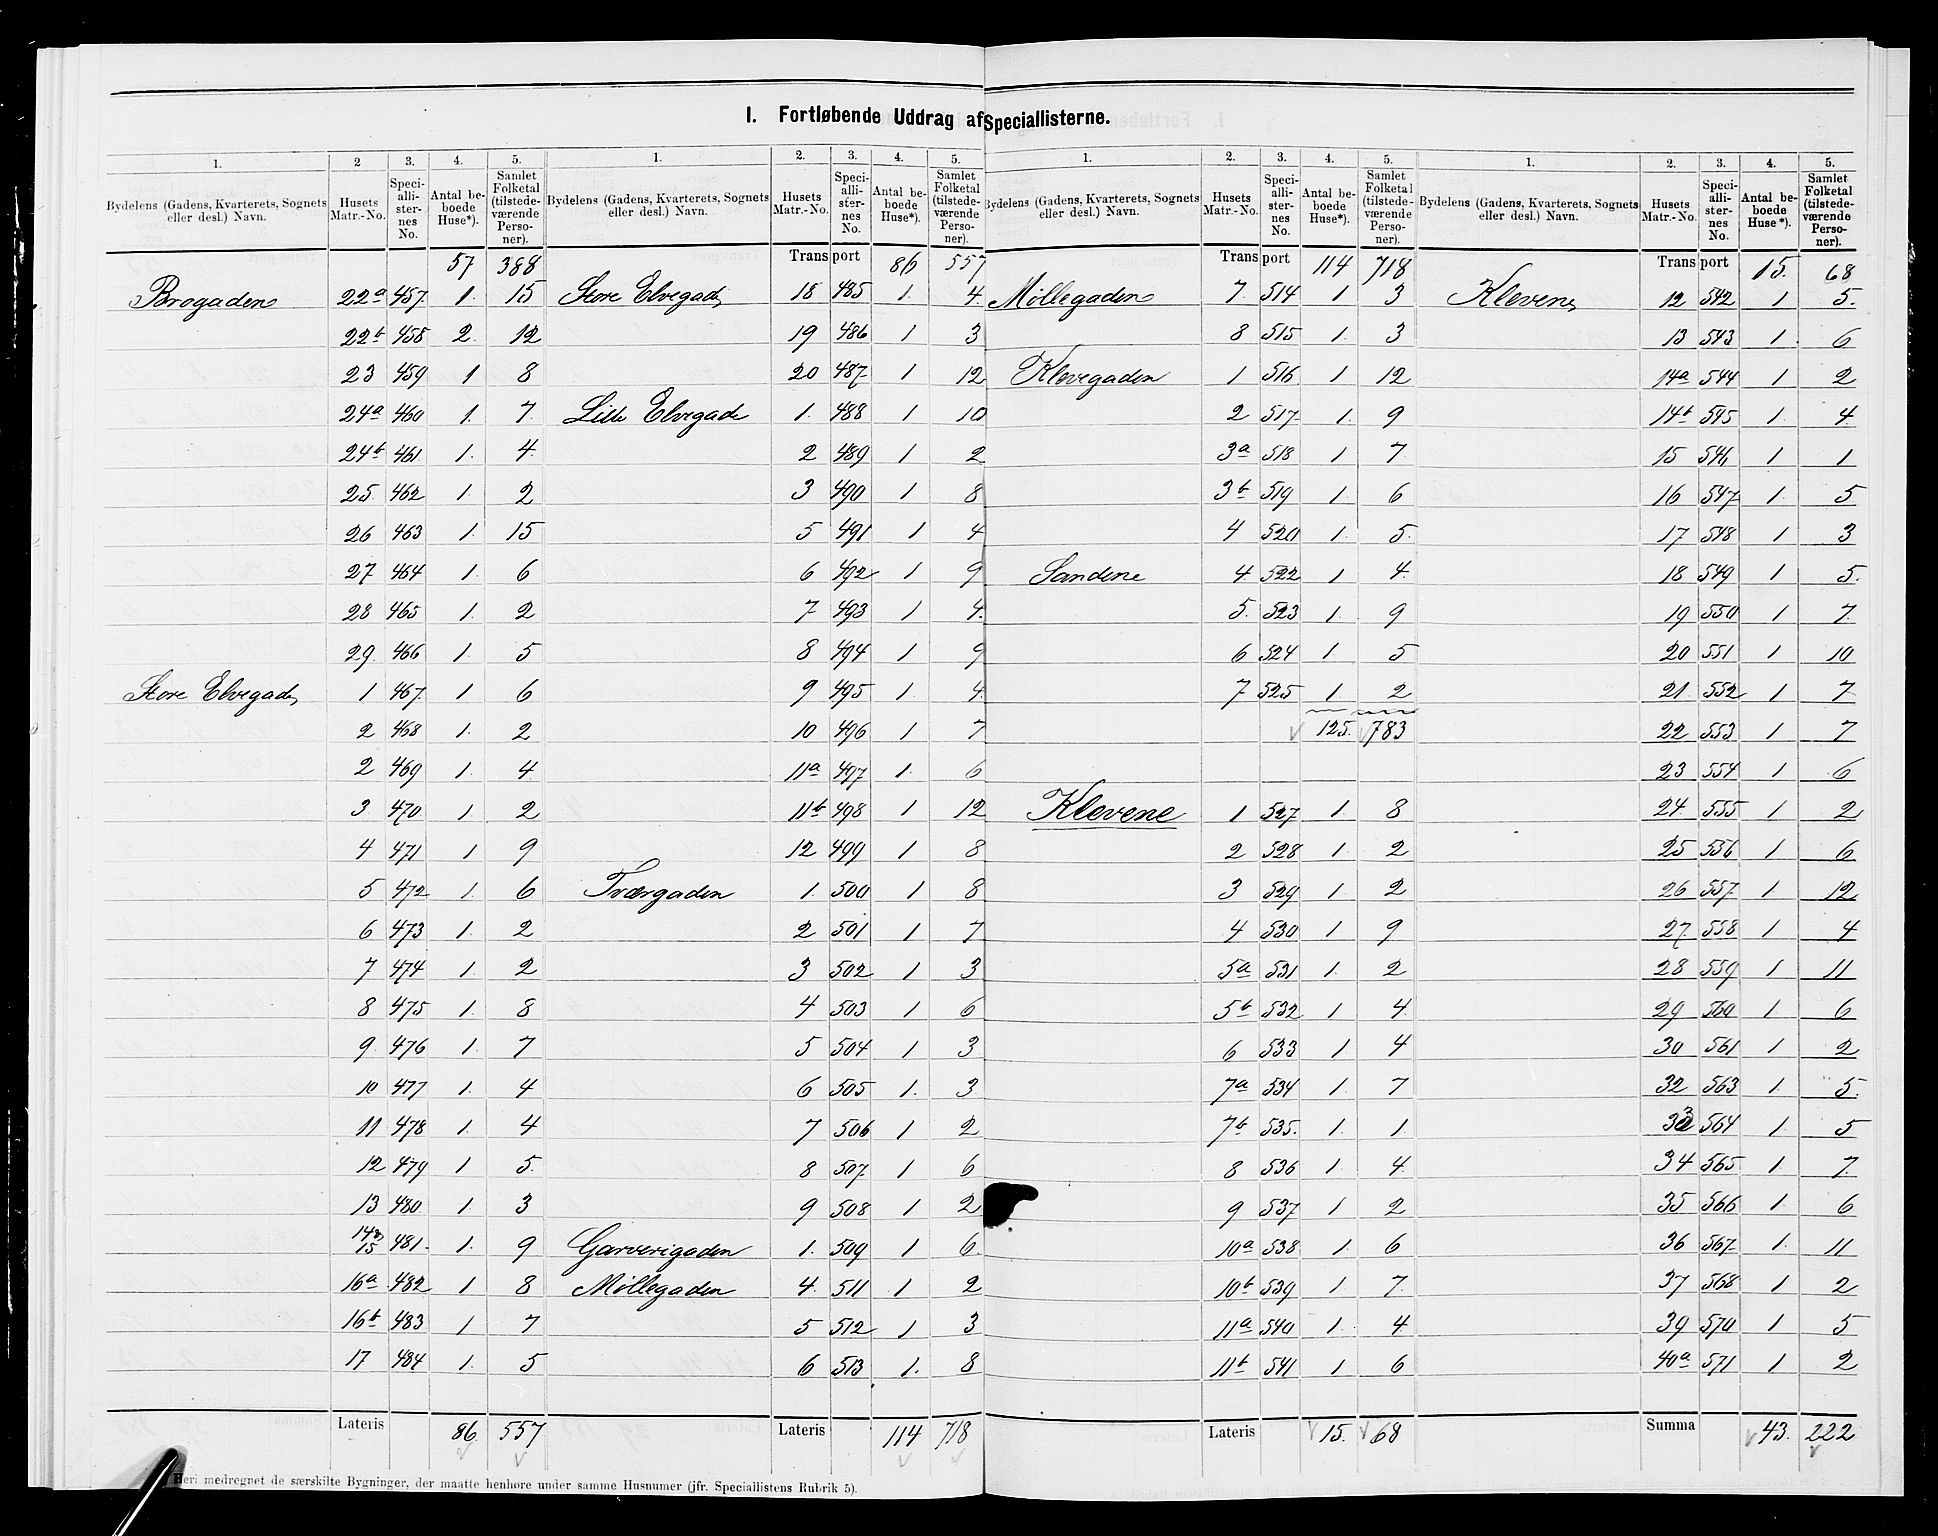 I. Fortløbende Uddrag af Speciallisterne.
1. 2 3. 4. 5.
Bydelens (Gadens, Kvarterets, Sognets eller desl.) Navn. Husets Matr.-No. Speciallisternes No. Antal beboede Huse*). Samlet Folketal (tilstedeværende Personer).
57 388
Brogaden 22a 457. 1. 15
22b 458 2. 12
23 459 1 8
24a 460 1. 7.
24b 461. 1. 4.
25. 462 1. 2
26 463 1. 15
27 464 1. 6
28 465 1. 2
29. 466 1. 5
Store Elvegade 1 467. 1 6
2 468 1. 2
2 469 1. 4
3. 470. 1. 2
4 471 1 9
5 472 1. 6
6 473 1. 2
7 474 1. 2
8 475 1. 8
9. 476 1. 7
10 477 1. 4
11 478 1. 4
12 479 1 5.
13 480. 1. 3
14& 15 481. 1. 9
16a 482 1 8
16b 483 1 7
17 484 1. 5
Lateris 86. 557
1. 2. 3. 4. 5.
Bydelens (Gadens, Kvarterets, Sognets eller desl.) Navn. Husets Matr.-No. Speciallisternes No. Antal beboede Huse*). Samlet Folketal (tilstedeværende Personer).
Transport 86 557
Store Elvegade 18 485 1. 4
19 486 1 3
20 487. 1 12
Lille Elvegade 1. 488 1 10
2 489 1 2
3 490 1 8
5 491 1 4
6 492 1 9
7 493 1 4.
8 494 1 9
9 495 1. 4
10 496 1 7
11a 497 1. 6
11b 498 1 12
12 499 1 8
Tværgaden 1. 500 1 8
2 501 1 7
3 502 1 3
4 503 1 6
5 504 1 3
6 505 1. 3
7 506 1 2
8 507. 1 6
9 508 1 2
Garverigaden 1. 509 1 6.
Møllegaden 4. 511 1 2
5 512 1 3
6 513 1. 8
Lateris 114 718
1. 2. 3. 4. 5.
Bydelens (Gadens, Kvarterets, Sognets eller desl.) Navn. Husets Matr.-No. Speciallisternes No. Antal beboede Huse*). Samlet Folketal (tilstedeværende Personer).
Transport 114 718
Møllegaden 7. 514 1 3
8 515 1. 3
Klevegaden 1 516 1 12
2 517. 1. 9
3a 518 1 7.
3b 519 1. 6
4 520 1. 5.
Sandene 4 522 1 4.
5. 523 1. 9
6 524 1. 5
7 525 1 2
125. 783
Klevene 1 527 1. 8
2 528 1. 2
3 529 1. 2
4 530 1 9
5a 531 1. 2
5b 532 1 4.
6 533 1. 4
7a 534 1. 7
7b 535. 1. 1.
8 536 1. 4.
9 537 1. 2
10a 538 1. 6
10b 539 1 7.
11a 540 1. 4.
11b 541 1 6
Lateris 15. 68
1. 2. 3. 4. 5.
Bydelens (Gadens, Kvarterets, Sognets eller desl.) Navn. Husets Matr.-No. Speciallisternes No. Antal beboede Huse*). Samlet Folketal (tilstedeværende Personer).
Transport 15. 68
Klevene 12 542 1 5.
13 543 1. 6
14a 544 1 2
14b 545 1. 4.
15 546 1 1
16 547 1. 5
17 548 1 3
18 549 1 5.
19 550 1 7.
20 551 1 10
21. 552 1 7
22 553 1 7
23 554 1 6
24. 555 1 2
25 556 1 6
26 557. 1 12
27. 558 1 4
28 559 1 11
29 560 1 6
30 561 1 2
32 563 1. 5.
33 564 1. 5
34 565 1. 7.
35 566 1. 6
36 567. 1. 11
37 568 1 2
39 570 1 5
40a 571 1 2
Summa 43. 222
Heri medregnet de særskilte Bygninger, der maatte henhøre under samme Husnumer (jfr. Speciallistens Rubrik 5).